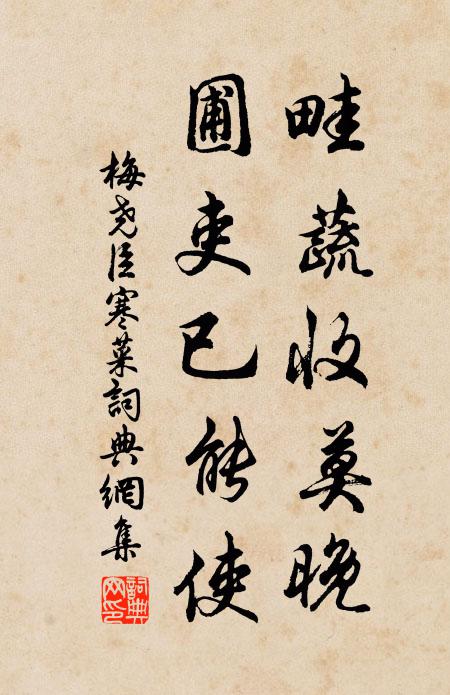 畦蔬收莫晚
圃吏已能使
梅尧臣寒菜詞典網集
詞典网印